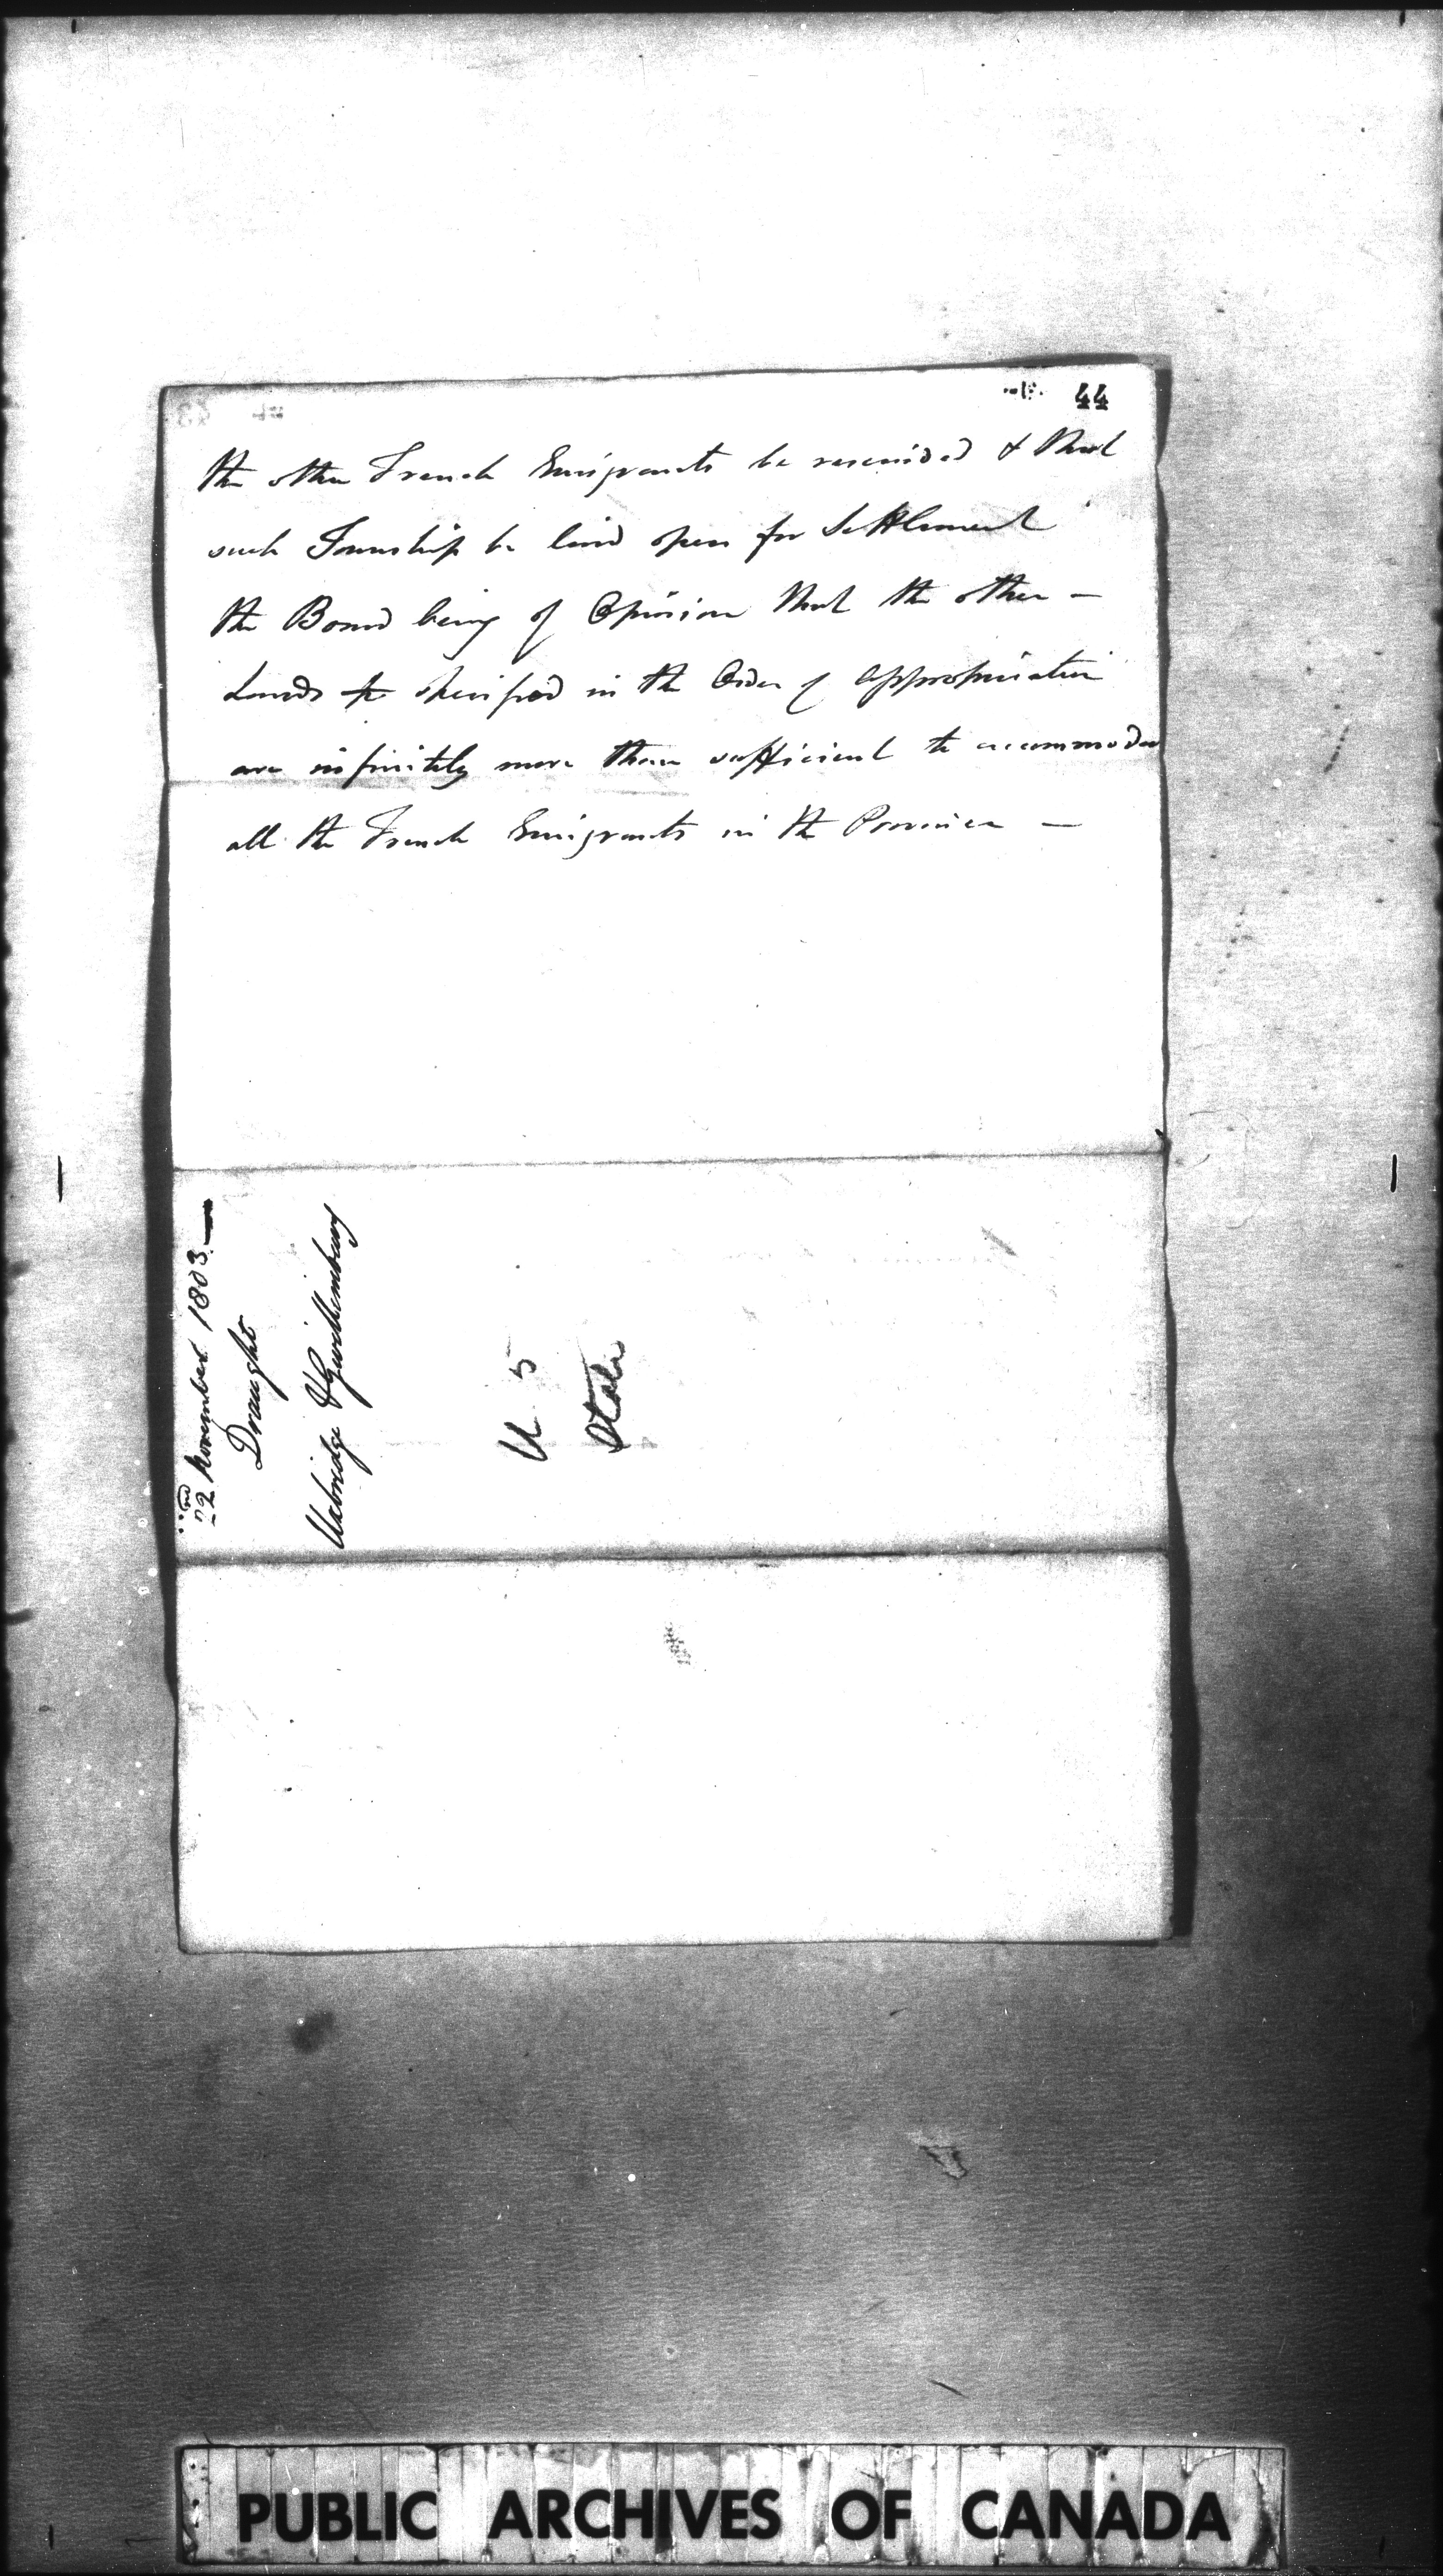 44
the other French Emigrants be rescinded & that
such Township be laid open for Settlement
the Board being of Opinion that the other —
Lands specified in the Order of appropriation
are infinitely more than sufficient to accommoda
all the French Emigrants in the Province —
22nd November 1803 —
Draught
Uxbridge & Gwillimbury
U 5
PUBLIC ARCHIVES OF CANADA